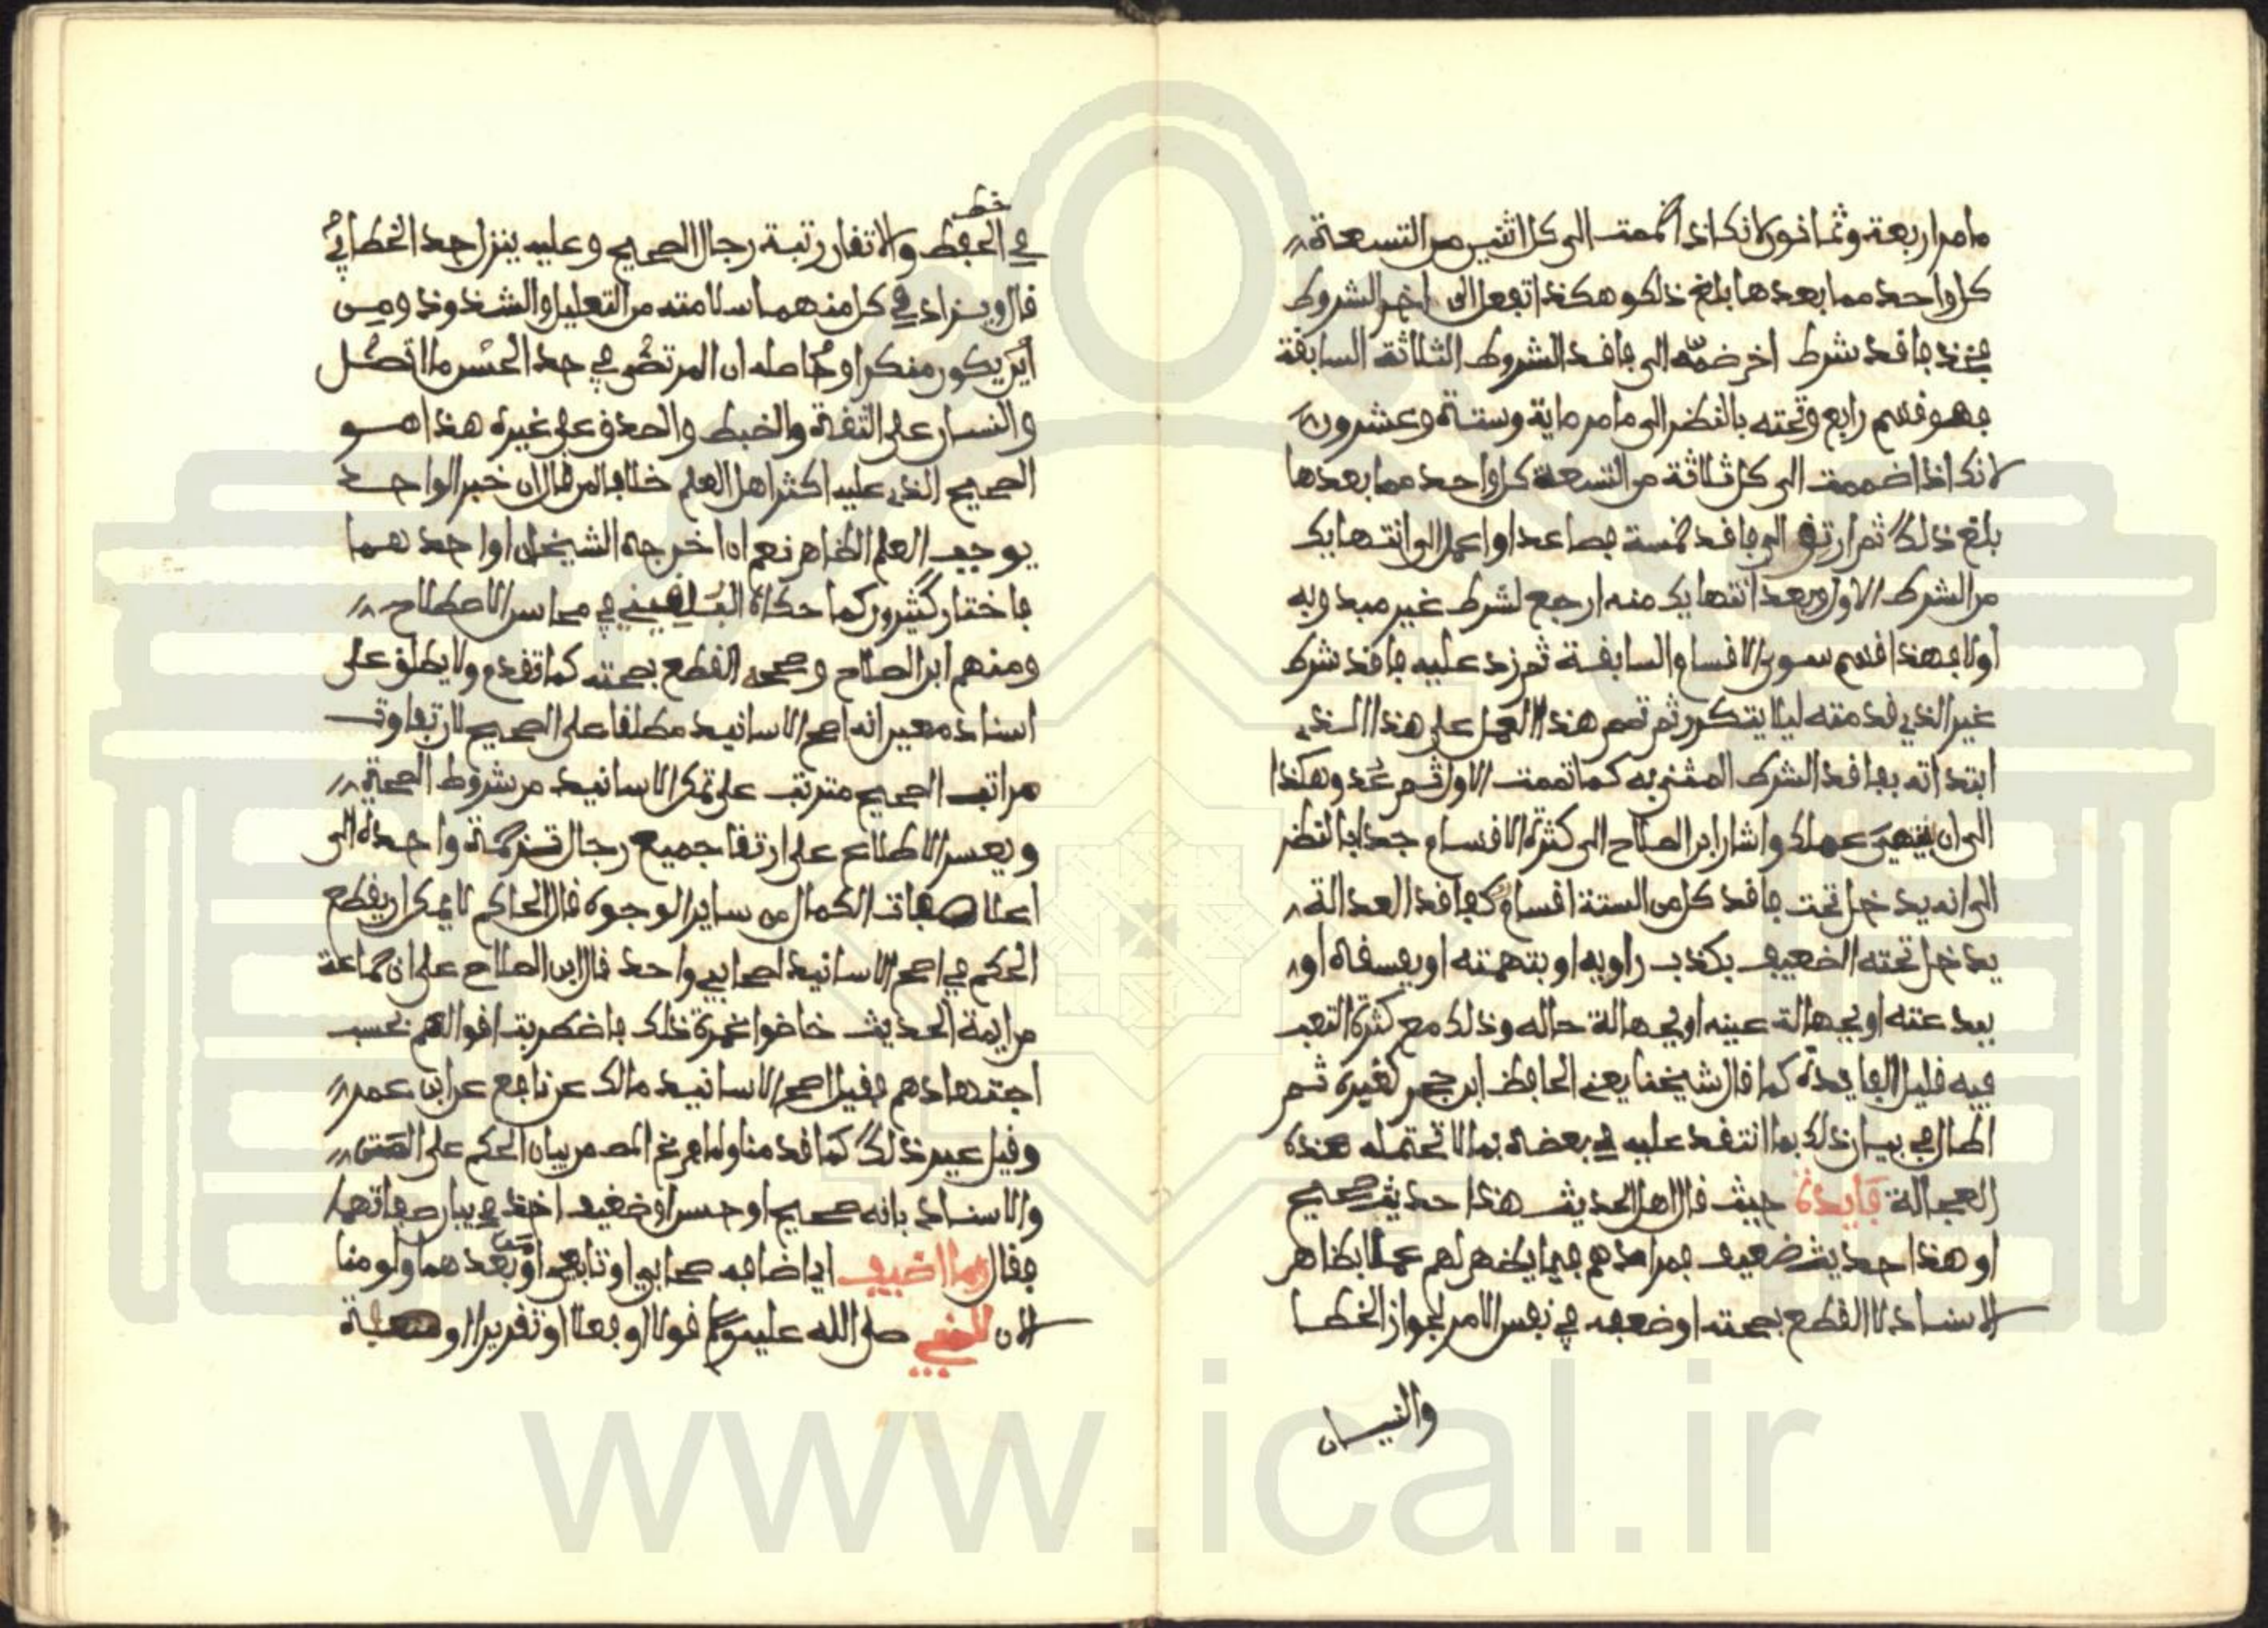 ما مر اربعة وثمانون لانك اذا ضممت الى كل اثنين من التسعة
كل واحد مما بعدها بلغ ذلك وهكذا تفعل الى اخر الشروط
فخذ فاقد شرط اخر ضمه الى فاقد الشروط الثلاثة السابقة
فهو قسم رابع وتحته بالنظر الى ما مر ماية وستة وعشرون
لانك اذا ضممت الى كل ثلاثة من التسعة كل واحد مما بعدها
بلغ ذلك ثم ارتق الى فاقد خمسة فصاعدا واعمل الى انتهايك
من الشرط الاول وبعد انتهايك منه ارجع لشرط غير مبدو به
اولا فهذا قسم سوى الاقسام السابقة ثم زد عليه فاقد شرط
غير الذي قدمته ليلا يتكرر ثم تمم هذا العمل على هذا الذي
ابتداته بفاقد الشرط المثنى به كما تممت الاول ثم عد وهكذا
الى ان ينتهي عملك واشار ابن الصلاح الى كثرة الاقسام جدا بالنظر
الى انه يدخل تحت فاقد كل من الستة اقسام كفاقد العدالة
يدخل تحته الضعيف بكذب راويه او بتهمته او بفسقه او
ببدعته او بجهالة عينه او بجهالة حاله وذلك مع كثرة التعب
فيه قليل الفايدة كما قال شيخنا يعني الحافظ ابن حجر كغيره ثم
اطال في بيان ذلك بما انتقد عليه في بعضه بما لا تحتمله هذه
العجالة فايدة حيث قال اهل الحديث هذا حديث صحيح
او هذا حديث ضعيف فمرادهم فيما يظهر لهم عملا بظاهر
الاسناد لا القطع بصحته او ضعفه في نفس الامر لجواز الخطا
والنسيان
في الحفظ ولا تقارب رتبة رجال الصحيح وعليه ينزل حد الخطابي
قال ويزاد في كل منهما سلامته من التعليل والشذوذ ومن
ان يكون منكرا وحاصله ان المرتضى في حد الحسن ما اتصل
والنسيان على الثقة والضبط والصدق على غيره هذا هو
الصحيح الذي عليه اكثر اهل العلم خلافا لمن قال ان خبر الواحد
يوجب العلم الظاهر نعم ان اخرجه الشيخان او احدهما
فاختار كثيرون كما حكاه البلقيني في محاسن الاصطلاح
ومنهم ابن الصلاح وصححه القطع بصحته كما تقدم ولا يطلق على
اسناد معين انه اصح الاسانيد مطلقا على الصحيح لان تفاوت
مراتب الصحيح مترتب على تمكن الاسانيد من شروط الصحة
ويعسر الاطلاع على ارتقا جميع رجال ترجمة واحدة الى
اعلا صفات الكمال من ساير الوجوه قال الحاكم لا يمكن ان يقطع
الحكم في اصح الاسانيد لصحابي واحد قال ابن الصلاح على ان جماعة
من ايمة الحديث خاضوا غمرة ذلك فاضطربت اقوالهم بحسب
اجتهادهم فقيل اصح الاسانيد مالك عن نافع عن ابن عمر
وقيل غير ذلك كما قدمنا ولما فرغ المص من بيان الحكم على المتن
والاسناد بانه صحيح او حسن او ضعيف اخذ في بيان صفاتهما
فقال وما اضيف اي اضافه صحابي او تابعي او من بعدهما ولو منا
الان للنبي صلى الله عليه وسلم قولا او فعلا او تقريرا او صفة